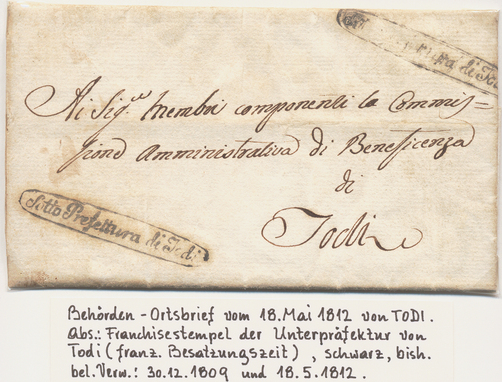 Sotto Prefettura di Todi
Ai Sig.ri Membri componenti la Commis=
sione Amministrativa di Beneficenza
di
Todi
Sotto Prefettura di Todi
Behörden - Ortsbrief vom 18. Mai 1812 von TODI.
Abs.: Franchisestempel der Unterpräfektur von
Todi (franz. Besatzungszeit), schwarz, bish.
bel. Verw.: 30.12.1809 und 18.5.1812.